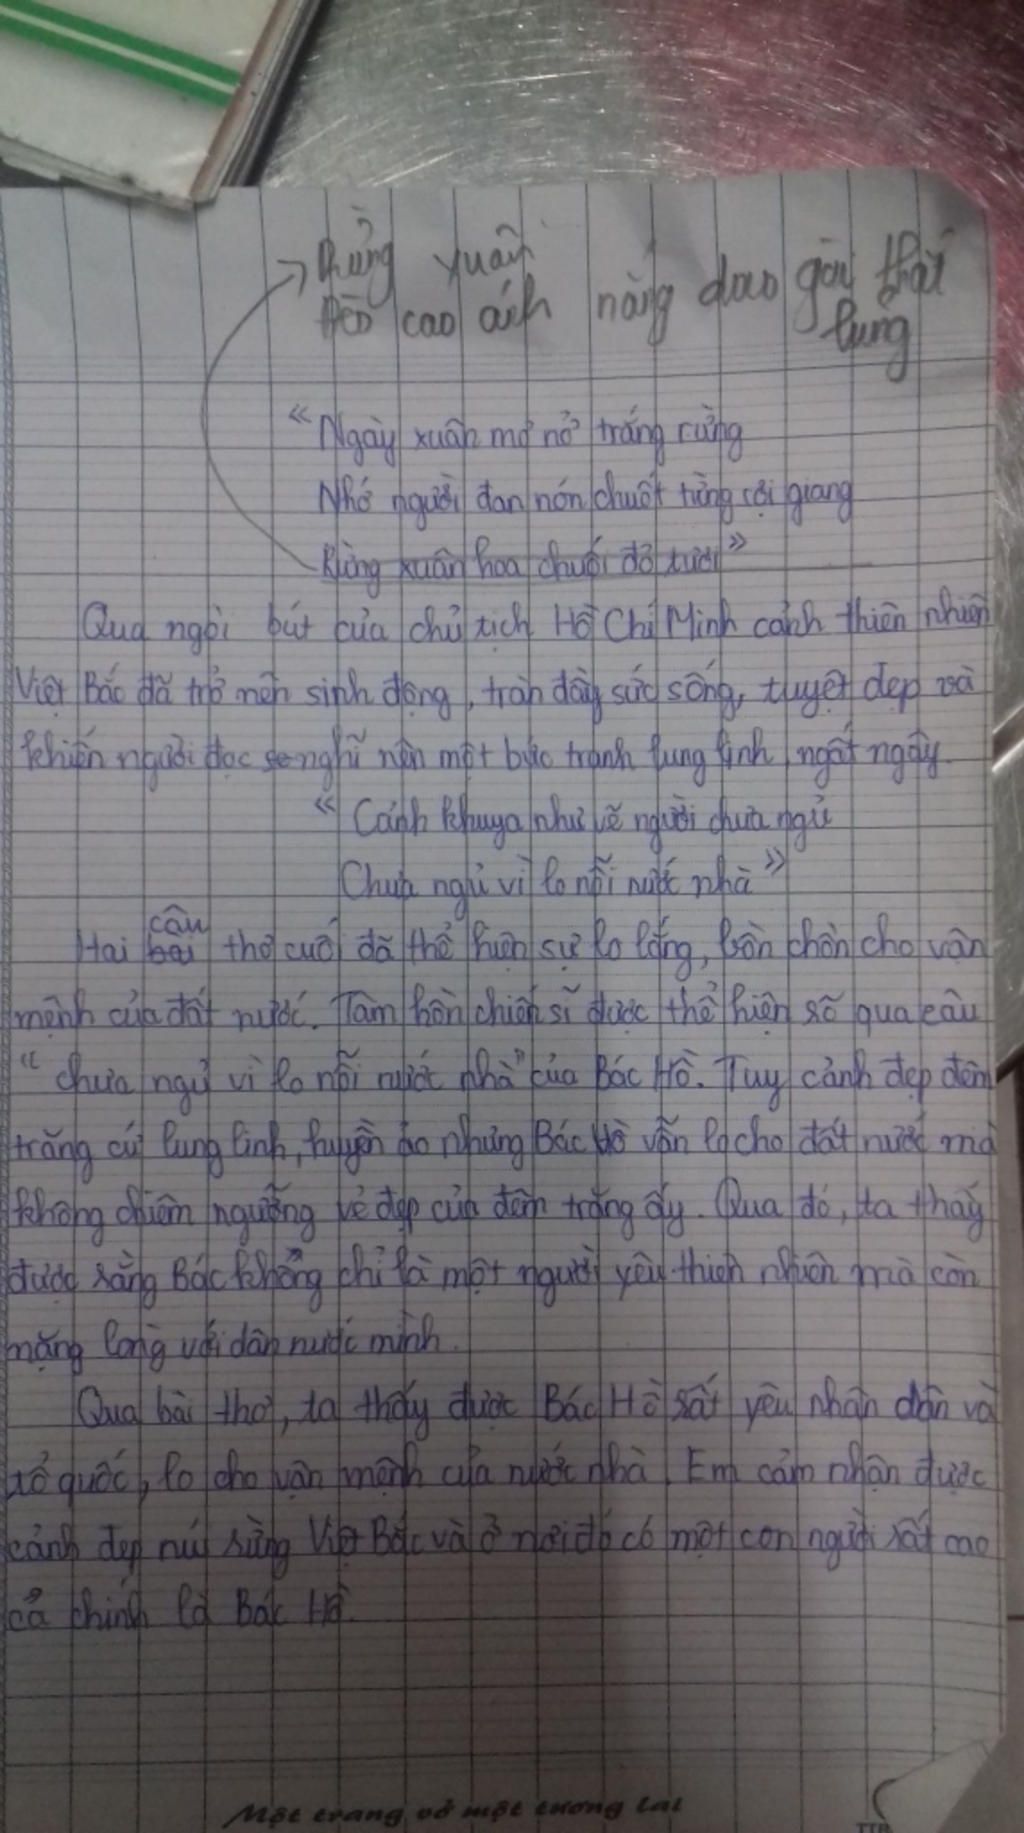 Rừng xuân
Đèo cao ánh nắng dao gài thắt
lưng
“Ngày xuân mơ nở trắng rừng
Nhớ người đan nón chuốt từng sợi giang
Rừng xuân hoa chuối đỏ tươi”
Qua ngòi bút của chủ tịch Hồ Chí Minh cảnh thiên nhiên
Việt Bắc đã trở nên sinh động, tràn đầy sức sống, tuyệt đẹp và
khiến người đọc nghĩ nên một bức tranh lung linh, ngất ngây.
“Cảnh khuya như vẽ người chưa ngủ
Chưa ngủ vì lo nỗi nước nhà”
câu
Hai bài thơ cuối đã thể hiện sự lo lắng, bồn chồn cho vận
mệnh của đất nước. Tâm hồn chiến sĩ được thể hiện rõ qua câu
“chưa ngủ vì lo nỗi nước nhà” của Bác Hồ. Tuy cảnh đẹp đêm
trăng cứ lung linh, huyền ảo nhưng Bác Hồ vẫn lo cho đất nước mà
không chiêm ngưỡng vẻ đẹp của đêm trăng ấy. Qua đó, ta thấy
được rằng Bác không chỉ là một người yêu thiên nhiên mà còn
nặng lòng với dân nước mình.
Qua bài thơ, ta thấy được Bác Hồ rất yêu nhân dân và
tổ quốc, lo cho vận mệnh của nước nhà. Em cảm nhận được
cảnh đẹp núi rừng Việt Bắc và ở nơi đó có một con người rất cao
cả chính là Bác Hồ.
Một trang vở một tương lai